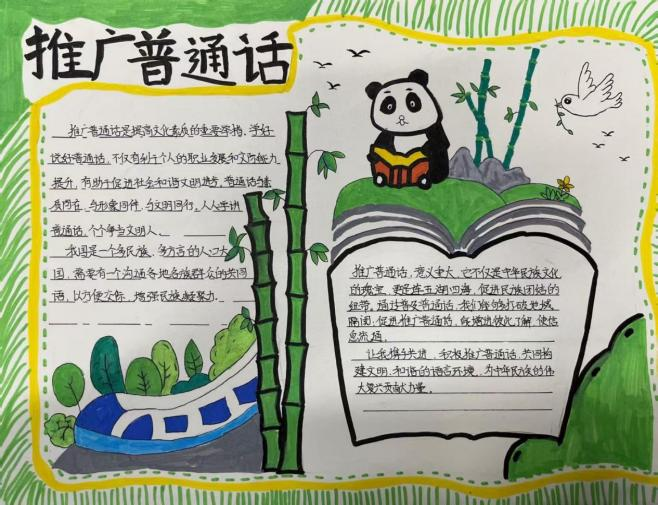 推广普通话
推广普通话是提高文化素质的重要举措，学好
说好普通话，不仅有利于个人的职业发展和交际能力
提升，有助于促进社会和谐文明进步。普通话与素
质同在，与形象同伴，与文明同行，人人争讲
普通话，个个争当文明人。
我国是一个多民族、多方言的人口大
国，需要有一个沟通各地各族群众的共同
语，以方便交际，增强民族凝聚力。
推广普通话，意义重大，它不仅是中华民族文化
的瑰宝，更是连五湖四海，促进民族团结的
纽带。通过普及普通话，我们能够打破地域
隔阂；促进推广普通话，能增进彼此了解，使信
息流通。
让我们携手共进，积极推广普通话，共同构
建文明、和谐的语言环境，为中华民族的伟
大复兴贡献力量。